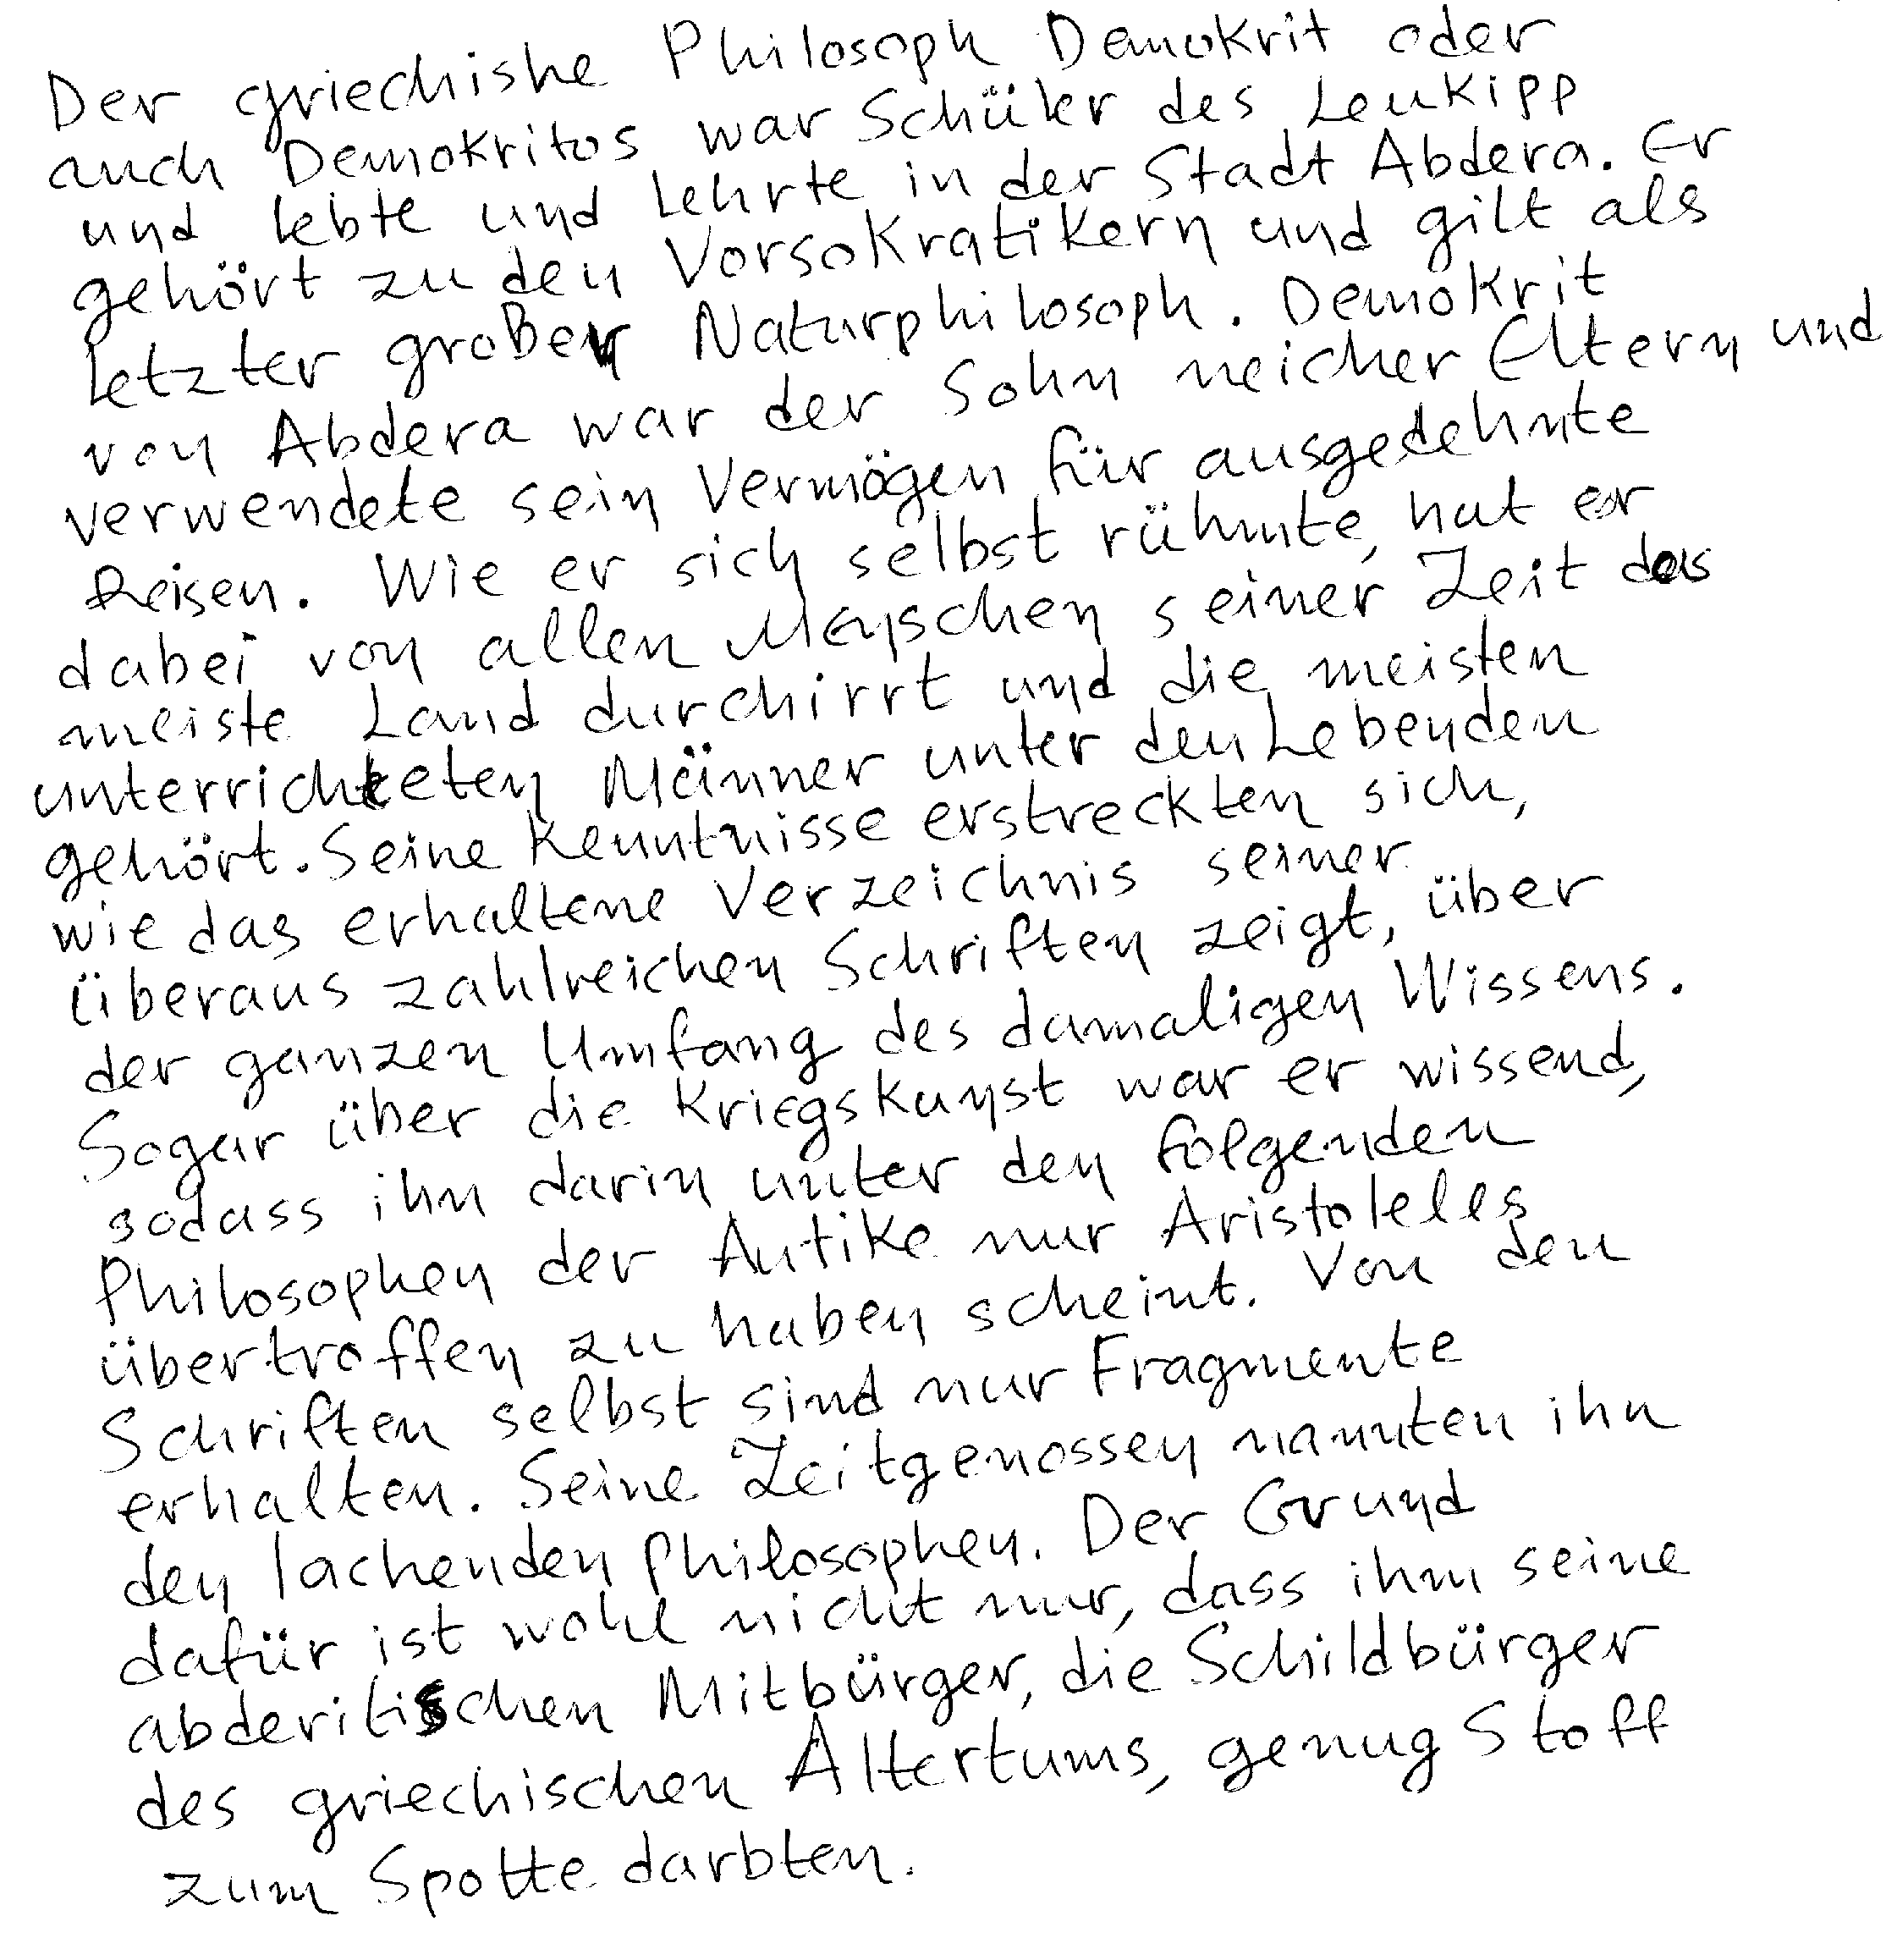 Der griechishe Philosoph Demokrit oder
auch Demokritos war Schüler des Leukipp
und lebte und lehrte in der Stadt Abdera. Er
gehört zu den Vorsokratikern und gilt als
letzter großer Naturphilosoph. Demokrit
von Abdera war der Sohn reicher Eltern und
verwendete sein Vermögen für ausgedehnte
Reisen. Wie er sich selbst rühmte, hat er
dabei von allen Menschen seiner Zeit das
meiste Land durchirrt und die meisten
unterrichteten Männer unter den Lebenden
gehört. Seine Kenntnisse erstreckten sich,
wie das erhaltene Verzeichnis seiner
überaus zahlreichen Schriften zeigt, über
der ganzen Umfang des damaligen Wissens.
Sogar über die Kriegskunst war er wissend,
sodass ihn darin unter den folgenden
Philosophen der Antike nur Aristoteles
übertroffen zu haben scheint. Von den
Schriften selbst sind nur Fragmente
erhalten. Seine Zeitgenossen nannten ihn
den lachenden Philosophen. Der Grund
dafür ist wohl nicht nur, dass ihm seine
abderitischen Mitbürger, die Schildbürger
des griechischen Altertums, genug Stoff
zum Spotte darbten.